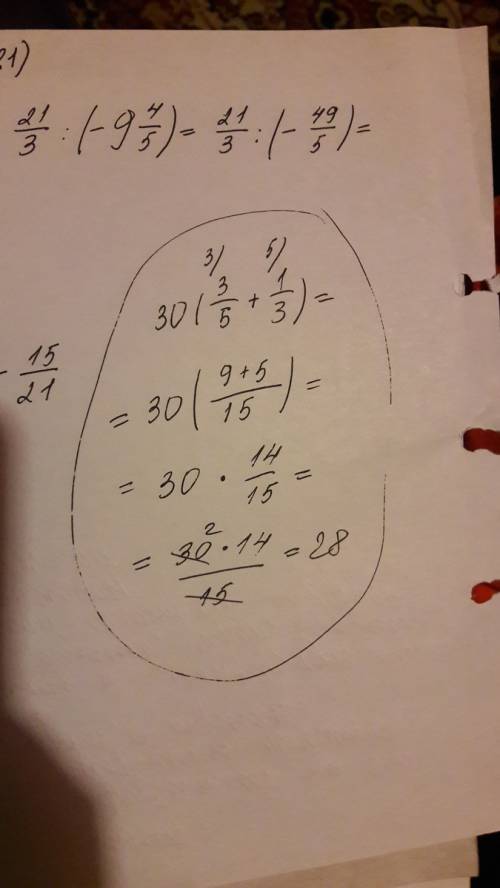 21)
21/3 : (-9 4/5) = 21/3 : (- 49/5) =
3) 5)
30(3/5 + 1/3) =
- 15/21
= 30((9+5)/15) =
= 30 · 14/15 =
2
= (30 · 14)/15 = 28